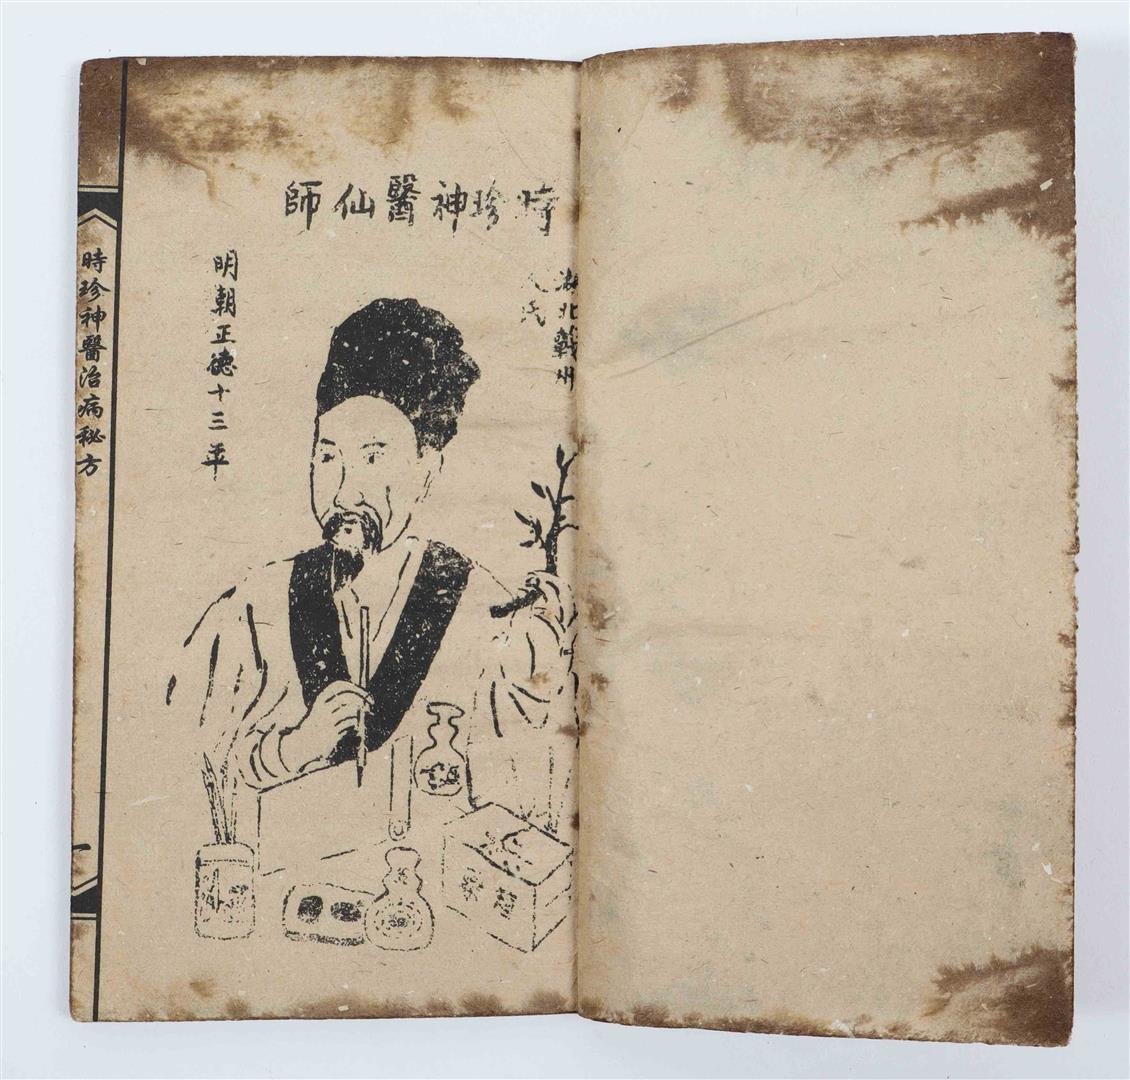 時珍神醫仙師
湖北州
氏
明朝正德十三年
時珍神醫治病秘方
一